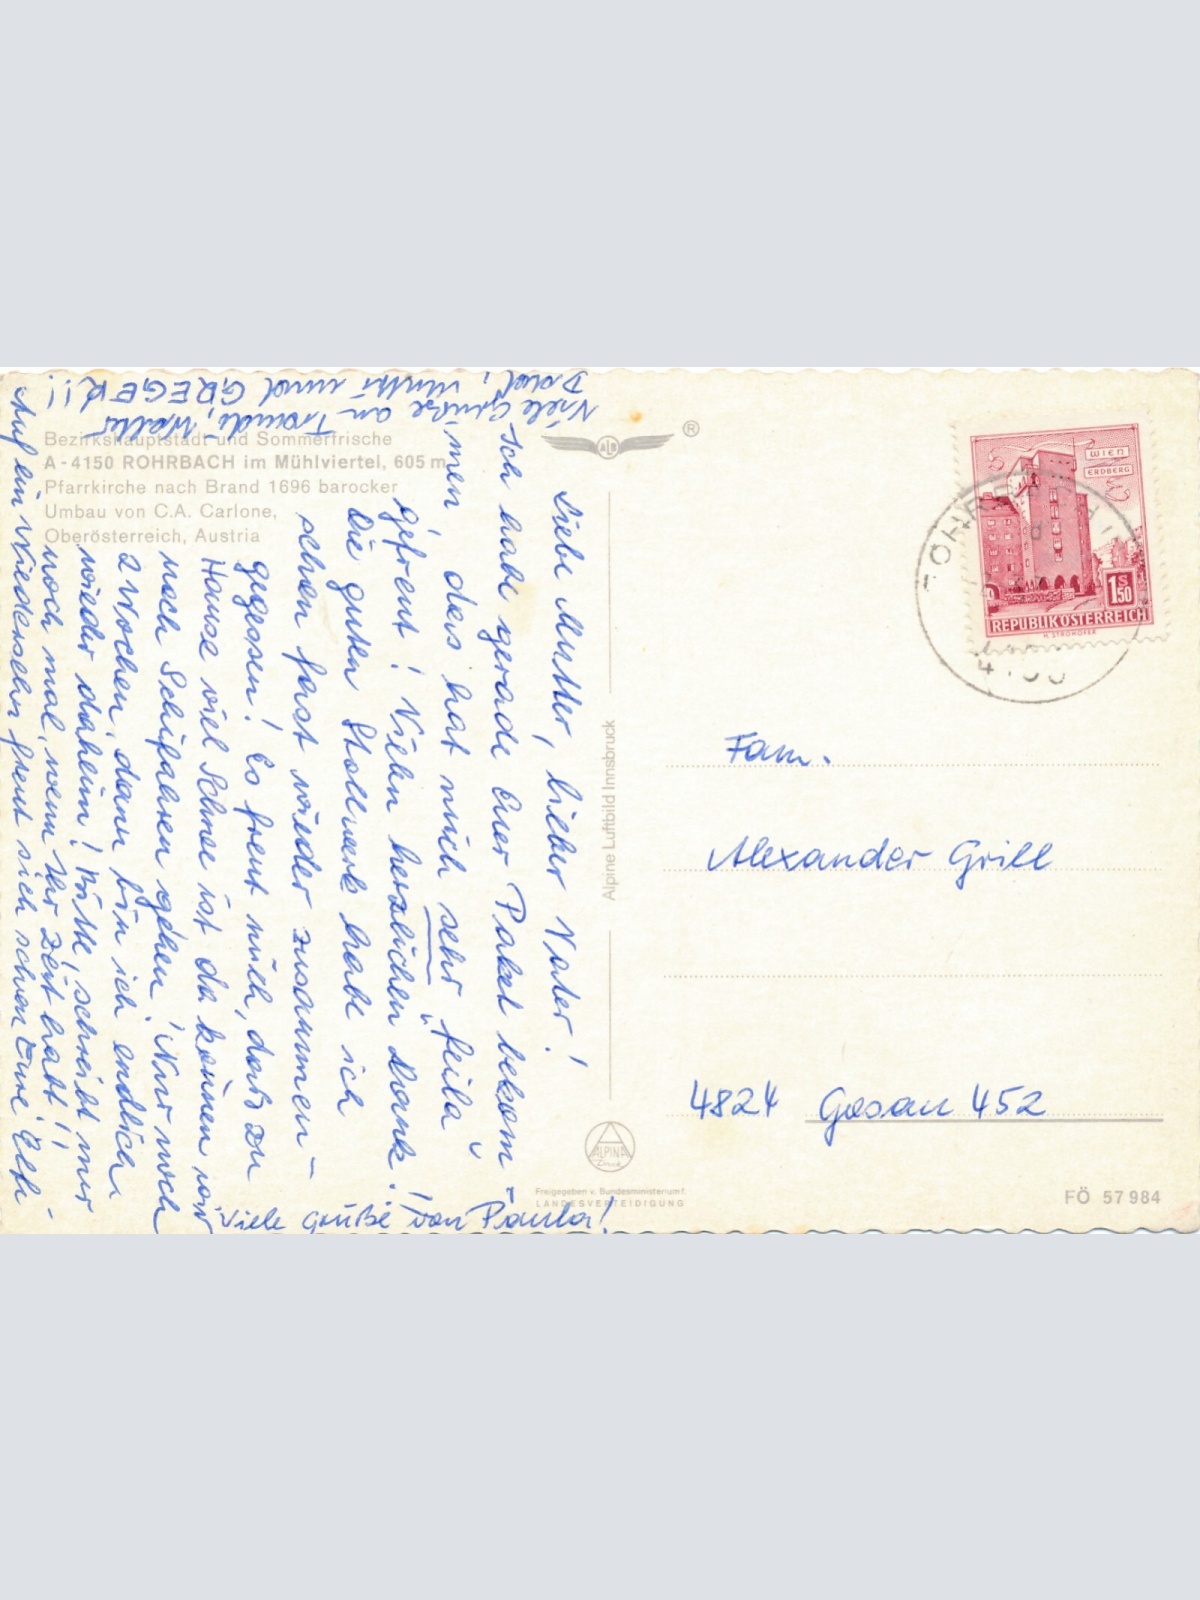 Bezirkshauptstadt und Sommerfrische
A-4150 ROHRBACH im Mühlviertel, 605 m
Pfarrkirche nach Brand 1696 barocker
Umbau von C.A. Carlone,
Oberösterreich, Austria
Liebe Mutter, lieber Vater!
Ich habe gerade Euer Paket bekom-
men, das hat mich sehr
gefreut! Vielen herzlichen Dank!
Die guten Stollwerk habe ich
schon fast wieder zusammen-
gegessen! Es freut mich, daß zu
Hause viel Schnee ist da können wir
noch Schifahren gehen! Nur noch
2 Wochen, dann bin ich endlich
wieder daheim! Bitte, schreibt mir
noch mal, wenn Ihr Zeit habt!!
Auf ein Wiedersehn freut sich schon Eure
Viele Grüße an Traudi, Walter
und GREGER!!!
Viele Grüße von Paula!
ALB
®
Alpine Luftbild Innsbruck
ALPINA
Druck
Freigegeben v. Bundesministerium f.
LANDESVERTEIDIGUNG
WIEN
ERDBERG
1 S 50
REPUBLIK ÖSTERREICH
H. STROHOFER
Fam.
Alexander Grill
4824 Gosau 452
FÖ 57 984